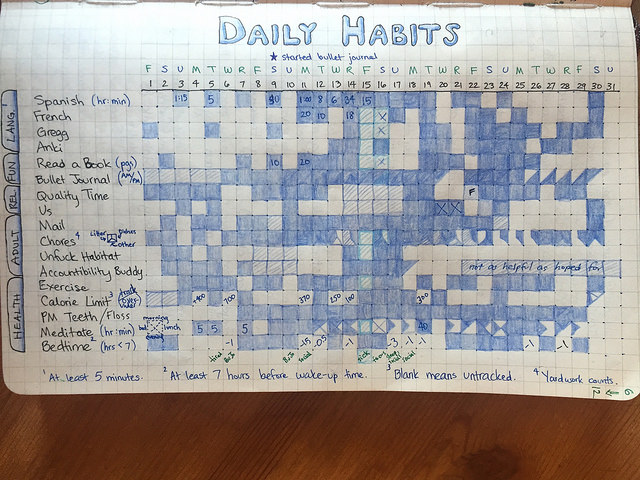 DAILY HABITS
★ started bullet journal
F S U M T W R F S U M T W R F S U M T W R F S U M T W R F S U
1 2 3 4 5 6 7 8 9 10 11 12 13 14 15 16 17 18 19 20 21 22 23 24 25 26 27 28 29 30 31
LANG.¹
Spanish (hr:min) 1:15 5 8 6 34 15
French 20 10 18 X
Gregg X
Anki
FUN
Read a Book (pgs) 10 20 X
Bullet Journal (AM/PM)
REL
Quality Time F
Us X X
ADULT
Mail
Chores⁴ other
Unfuck Habitat
Accountibility Buddy not as helpful as hoped for
HEALTH
Exercise
Calorie Limit³ +400 700 370 250 100 300
PM Teeth/Floss
Meditate (hr:min) morning lunch 5 5 5 40
Bedtime² (hrs < 7) -1 -1.5 -0.5 -1 -3 -1 -1 -1 -1
¹At least 5 minutes. ²At least 7 hours before wake-up time. ³Blank means untracked. ⁴Yardwork counts.